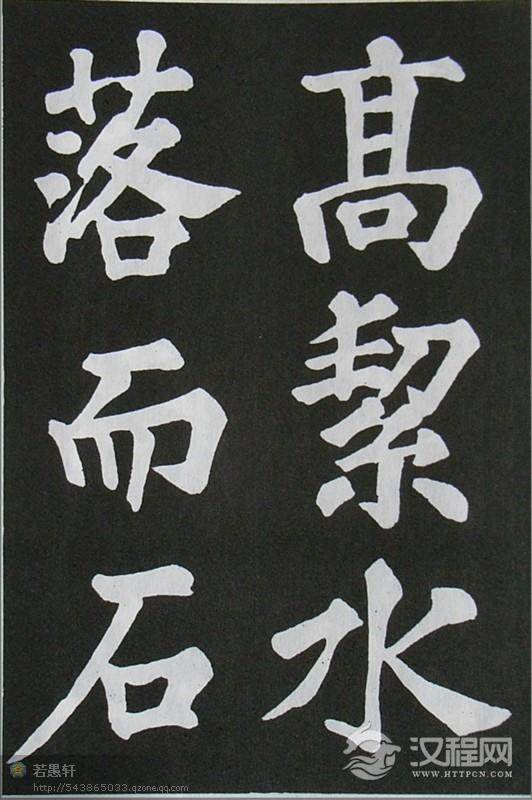 高絜水
落而石
若愚轩
http://543865033.qzone.qq.com
汉程网
WWW.HTTPCN.COM